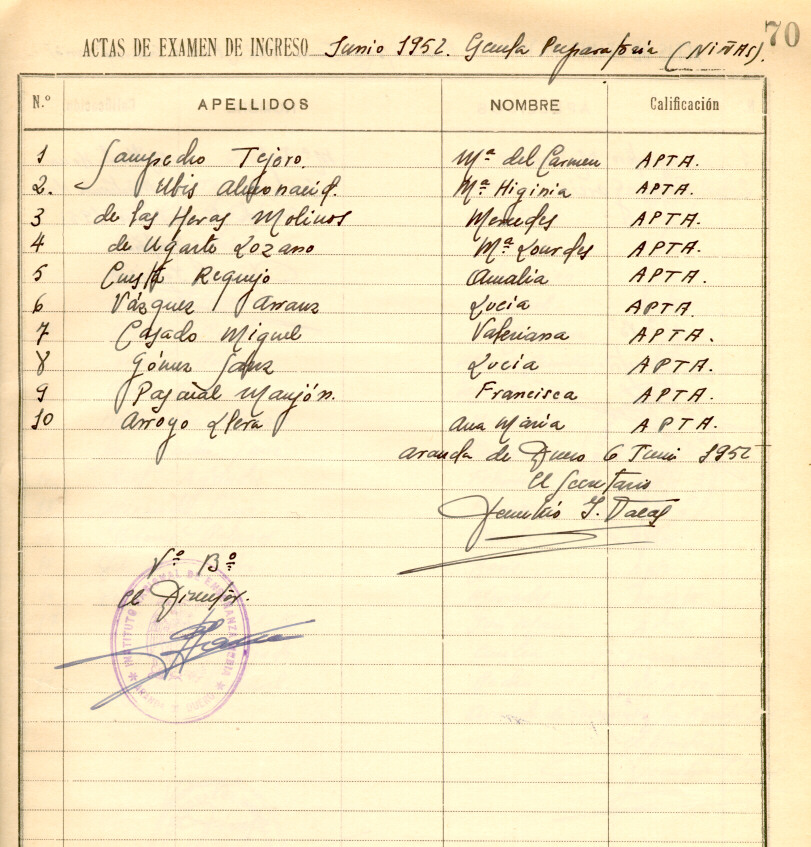 70
ACTAS DE EXAMEN DE INGRESO Junio 1952. Escuela Preparatoria (NIÑAS).
N.º APELLIDOS NOMBRE Calificación
1 Sampedro Tejero. Mª del Carmen APTA.
2. Ubis Almonacid. Mª Higinia APTA.
3 de las Heras Molinos Mercedes APTA.
4 de Ugarte Lozano Mª Lourdes APTA.
5 Cuesta Requejo Amalia APTA.
6 Vázquez Arranz Lucia APTA.
7 Casado Miguel Valeriana APTA.
8 Gómez Sanz Lucia APTA.
9 Pascual Manjón. Francisca APTA.
10 Arroyo Llera Ana Maria APTA.
Aranda de Duero 6 Junio 1952
El Secretario
Vº Bº
El Director.
INSTITUTO NACIONAL DE ENSEÑANZA MEDIA
ARANDA DE DUERO